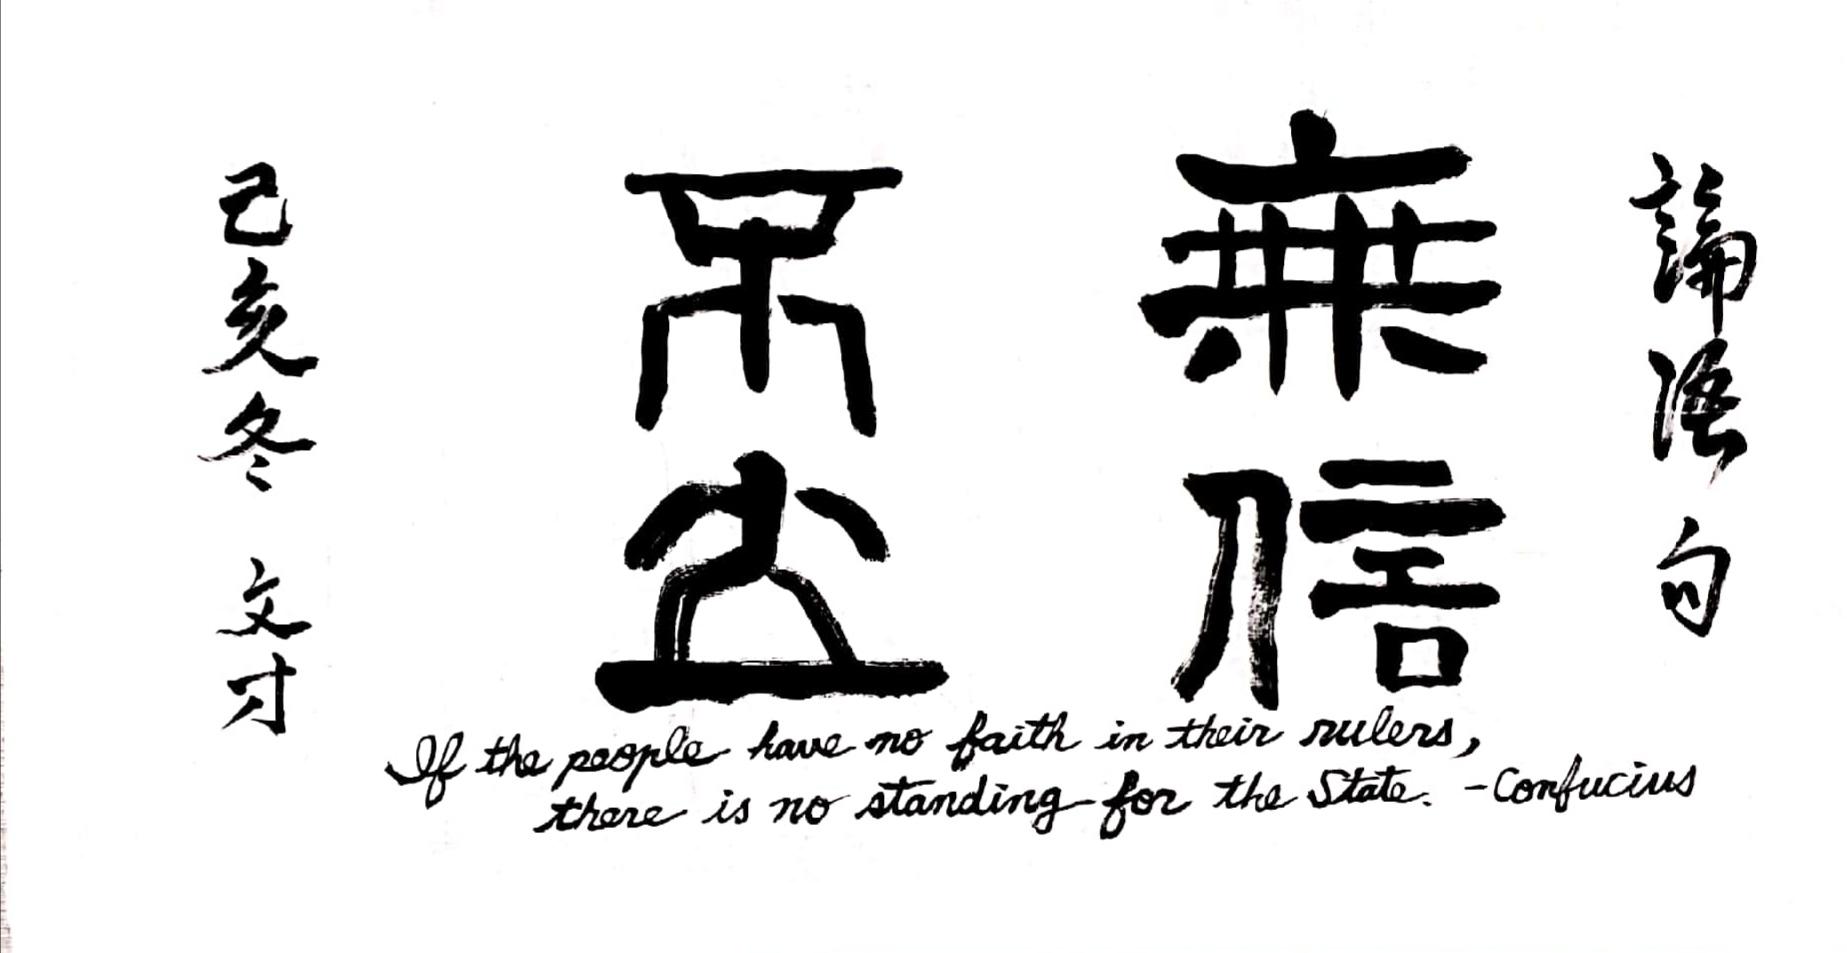 論語句
無信
不立
己亥冬 文才
If the people have no faith in their rulers,
there is no standing for the State. -Confucius